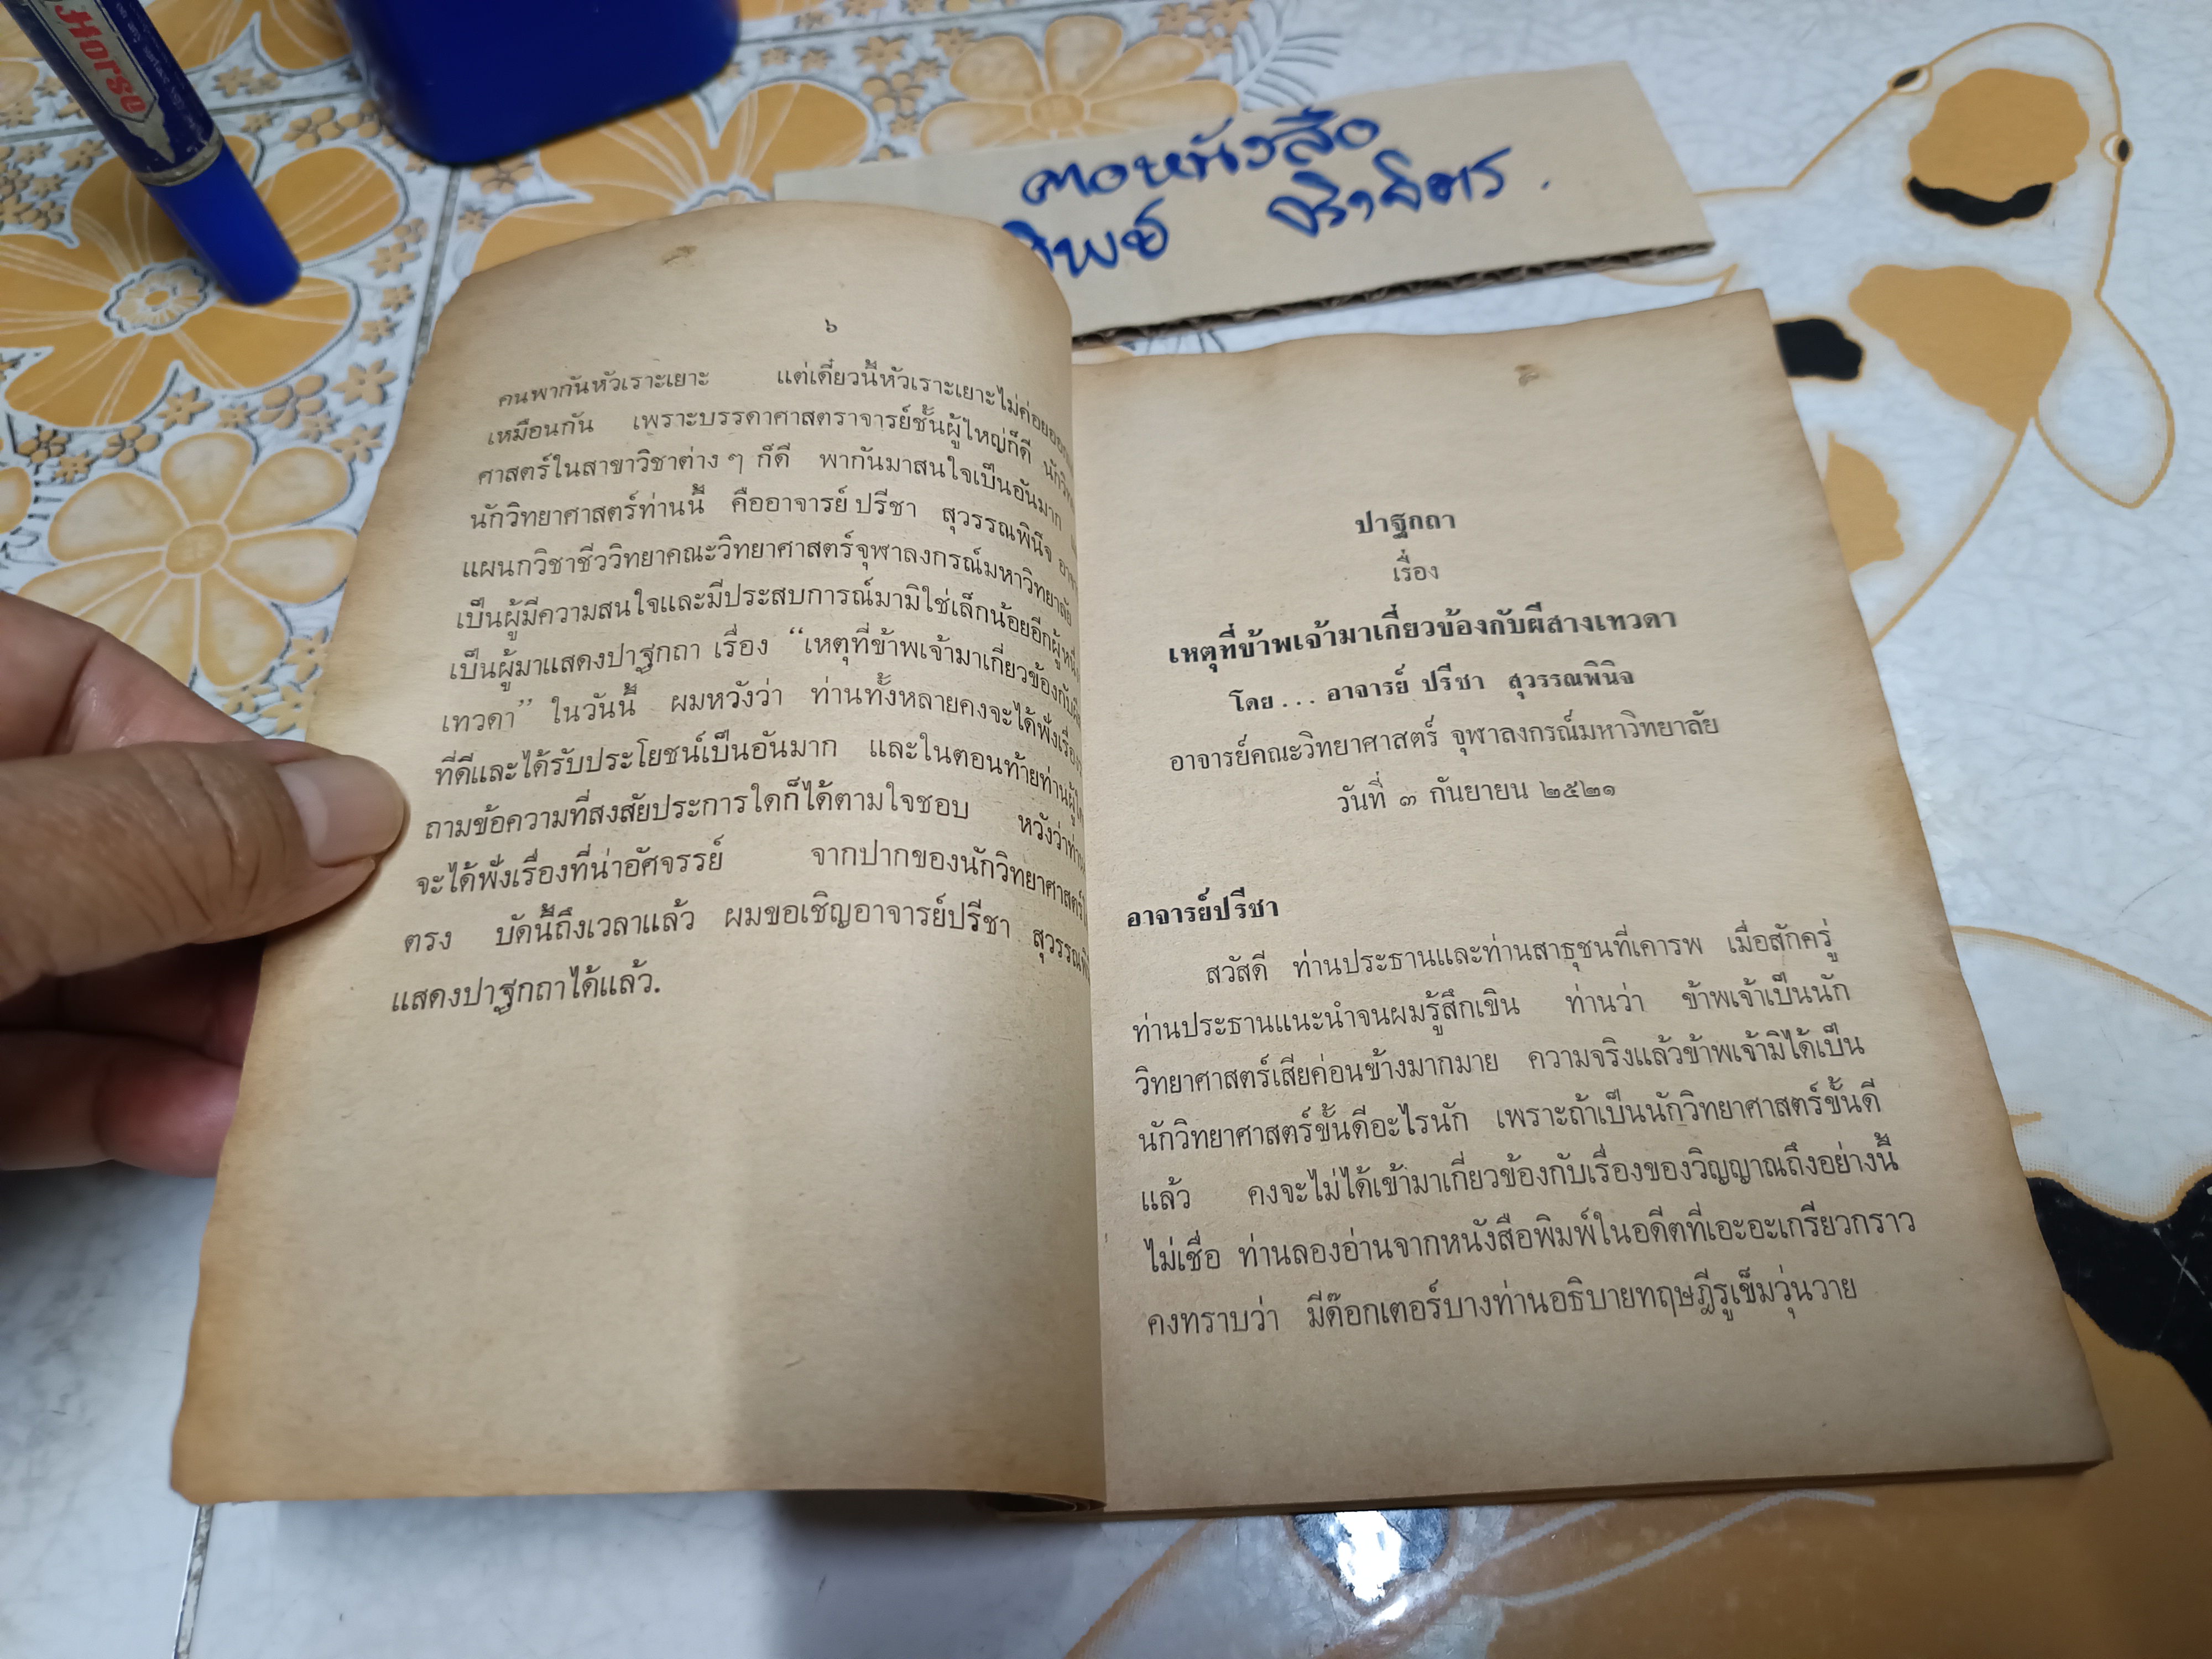 Horse
คอหนังสือ
ทิพย์ จิราจิตร.
๖
คนพากันหัวเราะเยาะ แต่เดี๋ยวนี้หัวเราะเยาะไม่ค่อยออก
เหมือนกัน เพราะบรรดาศาสตราจารย์ชั้นผู้ใหญ่ก็ดี
ศาสตร์ในสาขาวิชาต่าง ๆ ก็ดี พากันมาสนใจเป็นอันมาก
นักวิทยาศาสตร์ท่านนี้ คืออาจารย์ ปรีชา สุวรรณพินิจ
แผนกวิชาชีววิทยาคณะวิทยาศาสตร์จุฬาลงกรณ์มหาวิทยาลัย
เป็นผู้มีความสนใจและมีประสบการณ์มามิใช่เล็กน้อยอีกผู้หนึ่ง
เป็นผู้มาแสดงปาฐกถา เรื่อง “เหตุที่ข้าพเจ้ามาเกี่ยวข้องกับ
เทวดา” ในวันนี้ ผมหวังว่า ท่านทั้งหลายคงจะได้ฟังเรื่อง
ที่ดีและได้รับประโยชน์เป็นอันมาก และในตอนท้ายท่านผู้ใด
ถามข้อความที่สงสัยประการใดก็ได้ตามใจชอบ หวังว่า
จะได้ฟังเรื่องที่น่าอัศจรรย์ จากปากของนักวิทยาศาสตร์
ตรง บัดนี้ถึงเวลาแล้ว ผมขอเชิญอาจารย์ปรีชา
แสดงปาฐกถาได้แล้ว.
ปาฐกถา
เรื่อง
เหตุที่ข้าพเจ้ามาเกี่ยวข้องกับผีสางเทวดา
โดย . . . อาจารย์ ปรีชา สุวรรณพินิจ
อาจารย์คณะวิทยาศาสตร์ จุฬาลงกรณ์มหาวิทยาลัย
วันที่ ๓ กันยายน ๒๕๒๑
อาจารย์ปรีชา
สวัสดี ท่านประธานและท่านสาธุชนที่เคารพ เมื่อสักครู่
ท่านประธานแนะนำจนผมรู้สึกเขิน ท่านว่า ข้าพเจ้าเป็นนัก
วิทยาศาสตร์เสียค่อนข้างมากมาย ความจริงแล้วข้าพเจ้ามิได้เป็น
นักวิทยาศาสตร์ขั้นดีอะไรนัก เพราะถ้าเป็นนักวิทยาศาสตร์ขั้นดี
แล้ว คงจะไม่ได้เข้ามาเกี่ยวข้องกับเรื่องของวิญญาณถึงอย่างนี้
ไม่เชื่อ ท่านลองอ่านจากหนังสือพิมพ์ในอดีตที่เอะอะเกรียวกราว
คงทราบว่า มีด๊อกเตอร์บางท่านอธิบายทฤษฎีรูเข็มวุ่นวาย